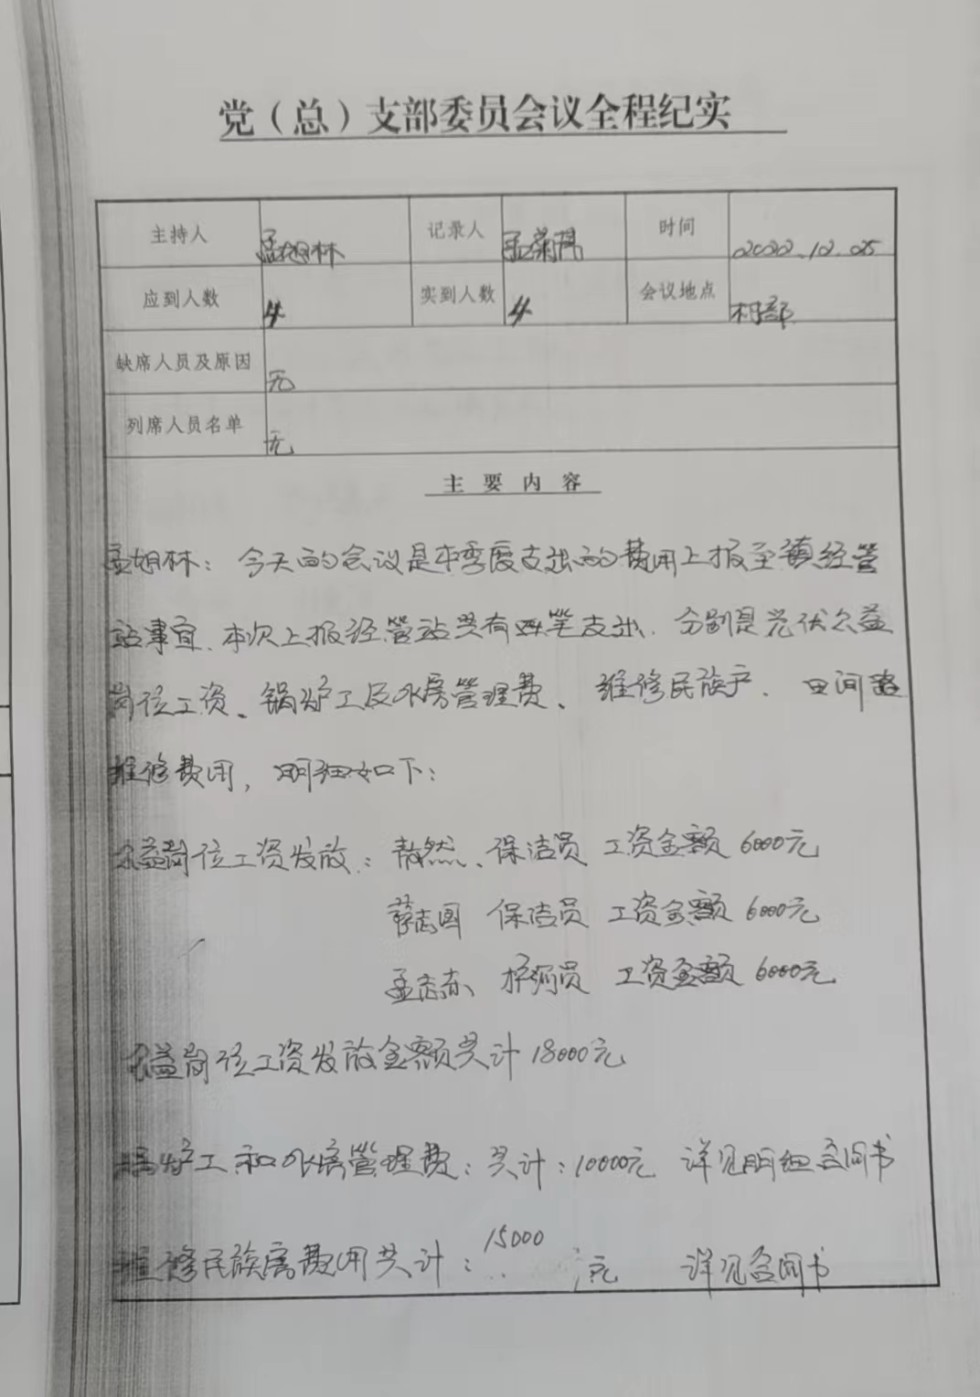 党（总）支部委员会议全程纪实
主持人 孟旭林 记录人 孟菊 时间 2022.12.05
应到人数 4 实到人数 4 会议地点 村部
缺席人员及原因 无
列席人员名单 无
主要内容
孟旭林：今天的会议是本季度支出的费用上报至镇经管
站事宜.本次上报经管站共有四笔支出.分别是光伏公益
岗位工资、锅炉工及水房管理费、维修民族户.田间路
维修费用，明细如下：
公益岗位工资发放：敖然、保洁员 工资金额 6000元
薛志国 保洁员 工资金额 6000元
孟志 护河员 工资金额 6000元
公益岗位工资发放金额共计18000元
锅炉工和水房管理费：共计：10000元 详见明细合同书
维修民族房费用共计：15000元 详见合同书